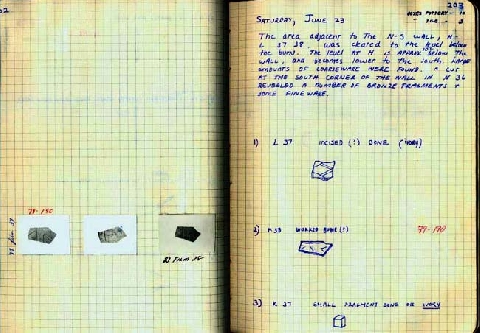 79-190
203
SATURDAY, JUNE 23
THE AREA ADJACENT TO THE N-S WALL,
L 37 38, WAS CLEARED TO THE LEVEL BELOW
THE BURN. THE LEVEL AT M IS BELOW THE
WALL, AND BECOMES LOWER TO THE SOUTH. LARGE
AMOUNTS OF COARSEWARE WERE FOUND. A CUT
AT THE SOUTH CORNER OF THE WALL IN M 36
REVEALED A NUMBER OF BRONZE FRAGMENTS +
SOME FINEWARE.
1) L 37 INCISED (?) BONE (IVORY)
2) WORKED BONE (?) 79-190
3) K 37 SMALL FRAGMENT BONE OR IVORY